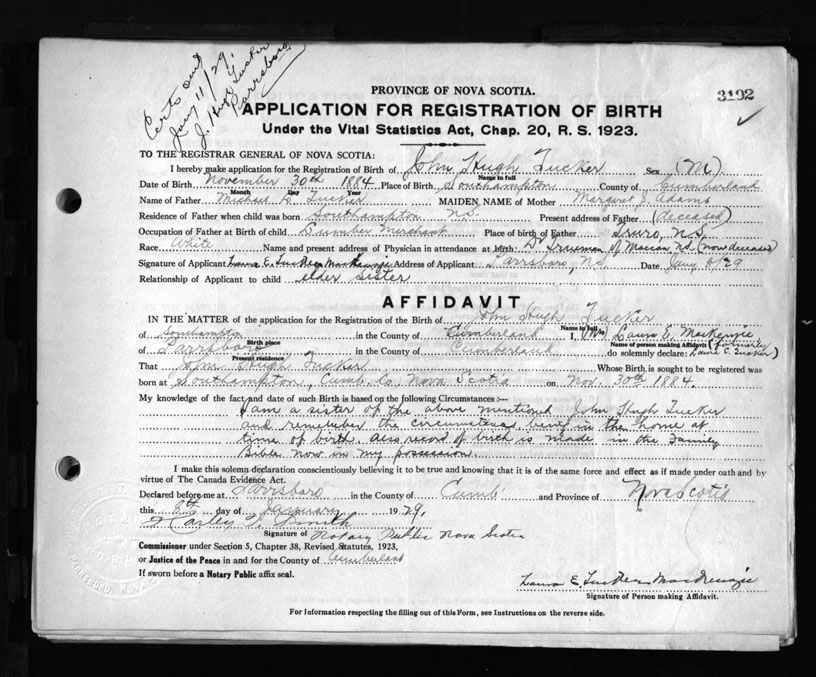 Certs sent
Jany 11/29.
J. Hugh Tucker
Parrsboro
3192
PROVINCE OF NOVA SCOTIA.
APPLICATION FOR REGISTRATION OF BIRTH
Under the Vital Statistics Act, Chap. 20, R. S. 1923.
TO THE REGISTRAR GENERAL OF NOVA SCOTIA:
I hereby make application for the Registration of Birth of John Hugh Tucker Sex (M)
Name in full
Date of Birth November 30th 1884 Place of Birth Southampton County of Cumberland
Month Day Year
Name of Father Michael Tucker MAIDEN NAME of Mother Margaret J. Adams
Residence of Father when child was born Southampton N.S. Present address of Father (deceased)
Occupation of Father at Birth of child Lumber Merchant Place of birth of Father Truro, N.S.
Race White Name and present address of Physician in attendance at birth: Dr of Maccan N.S. (now deceased)
Signature of Applicant Laura E. Tucker MacKenzie Address of Applicant Parrsboro, N.S. Date Jany 8/29
Relationship of Applicant to child elder Sister
AFFIDAVIT
IN THE MATTER of the application for the Registration of the Birth of John Hugh Tucker
Name in full
of Southampton in the County of Cumberland I, (Mrs) Laura E. MacKenzie
Birth place Name of person making Affidavit (formerly
of Parrsboro in the County of Cumberland do solemnly declare: Laura E. Tucker)
Present residence
That John Hugh Tucker Whose Birth is sought to be registered was
born at Southampton, Cumb. Co. Nova Scotia on Nov. 30th 1884.
My knowledge of the fact and date of such Birth is based on the following Circumstances :—
I am a sister of the above mentioned John Hugh Tucker
and remember the circumstances being in the home at
time of birth. Also record of birth is made in the Family
Bible now in my possession.
I make this solemn declaration conscientiously believing it to be true and knowing that it is of the same force and effect as if made under oath and by
virtue of The Canada Evidence Act.
Declared before me at Parrsboro in the County of Cumb. and Province of Nova Scotia
this 8th day of January 1929.
Harley Smith
Signature of Notary Public Nova Scotia
Commissioner under Section 5, Chapter 38, Revised Statutes, 1923,
or Justice of the Peace in and for the County of Cumberland
If sworn before a Notary Public affix seal.
Laura E. Tucker MacKenzie
Signature of Person making Affidavit.
For Information respecting the filling out of this Form, see Instructions on the reverse side.